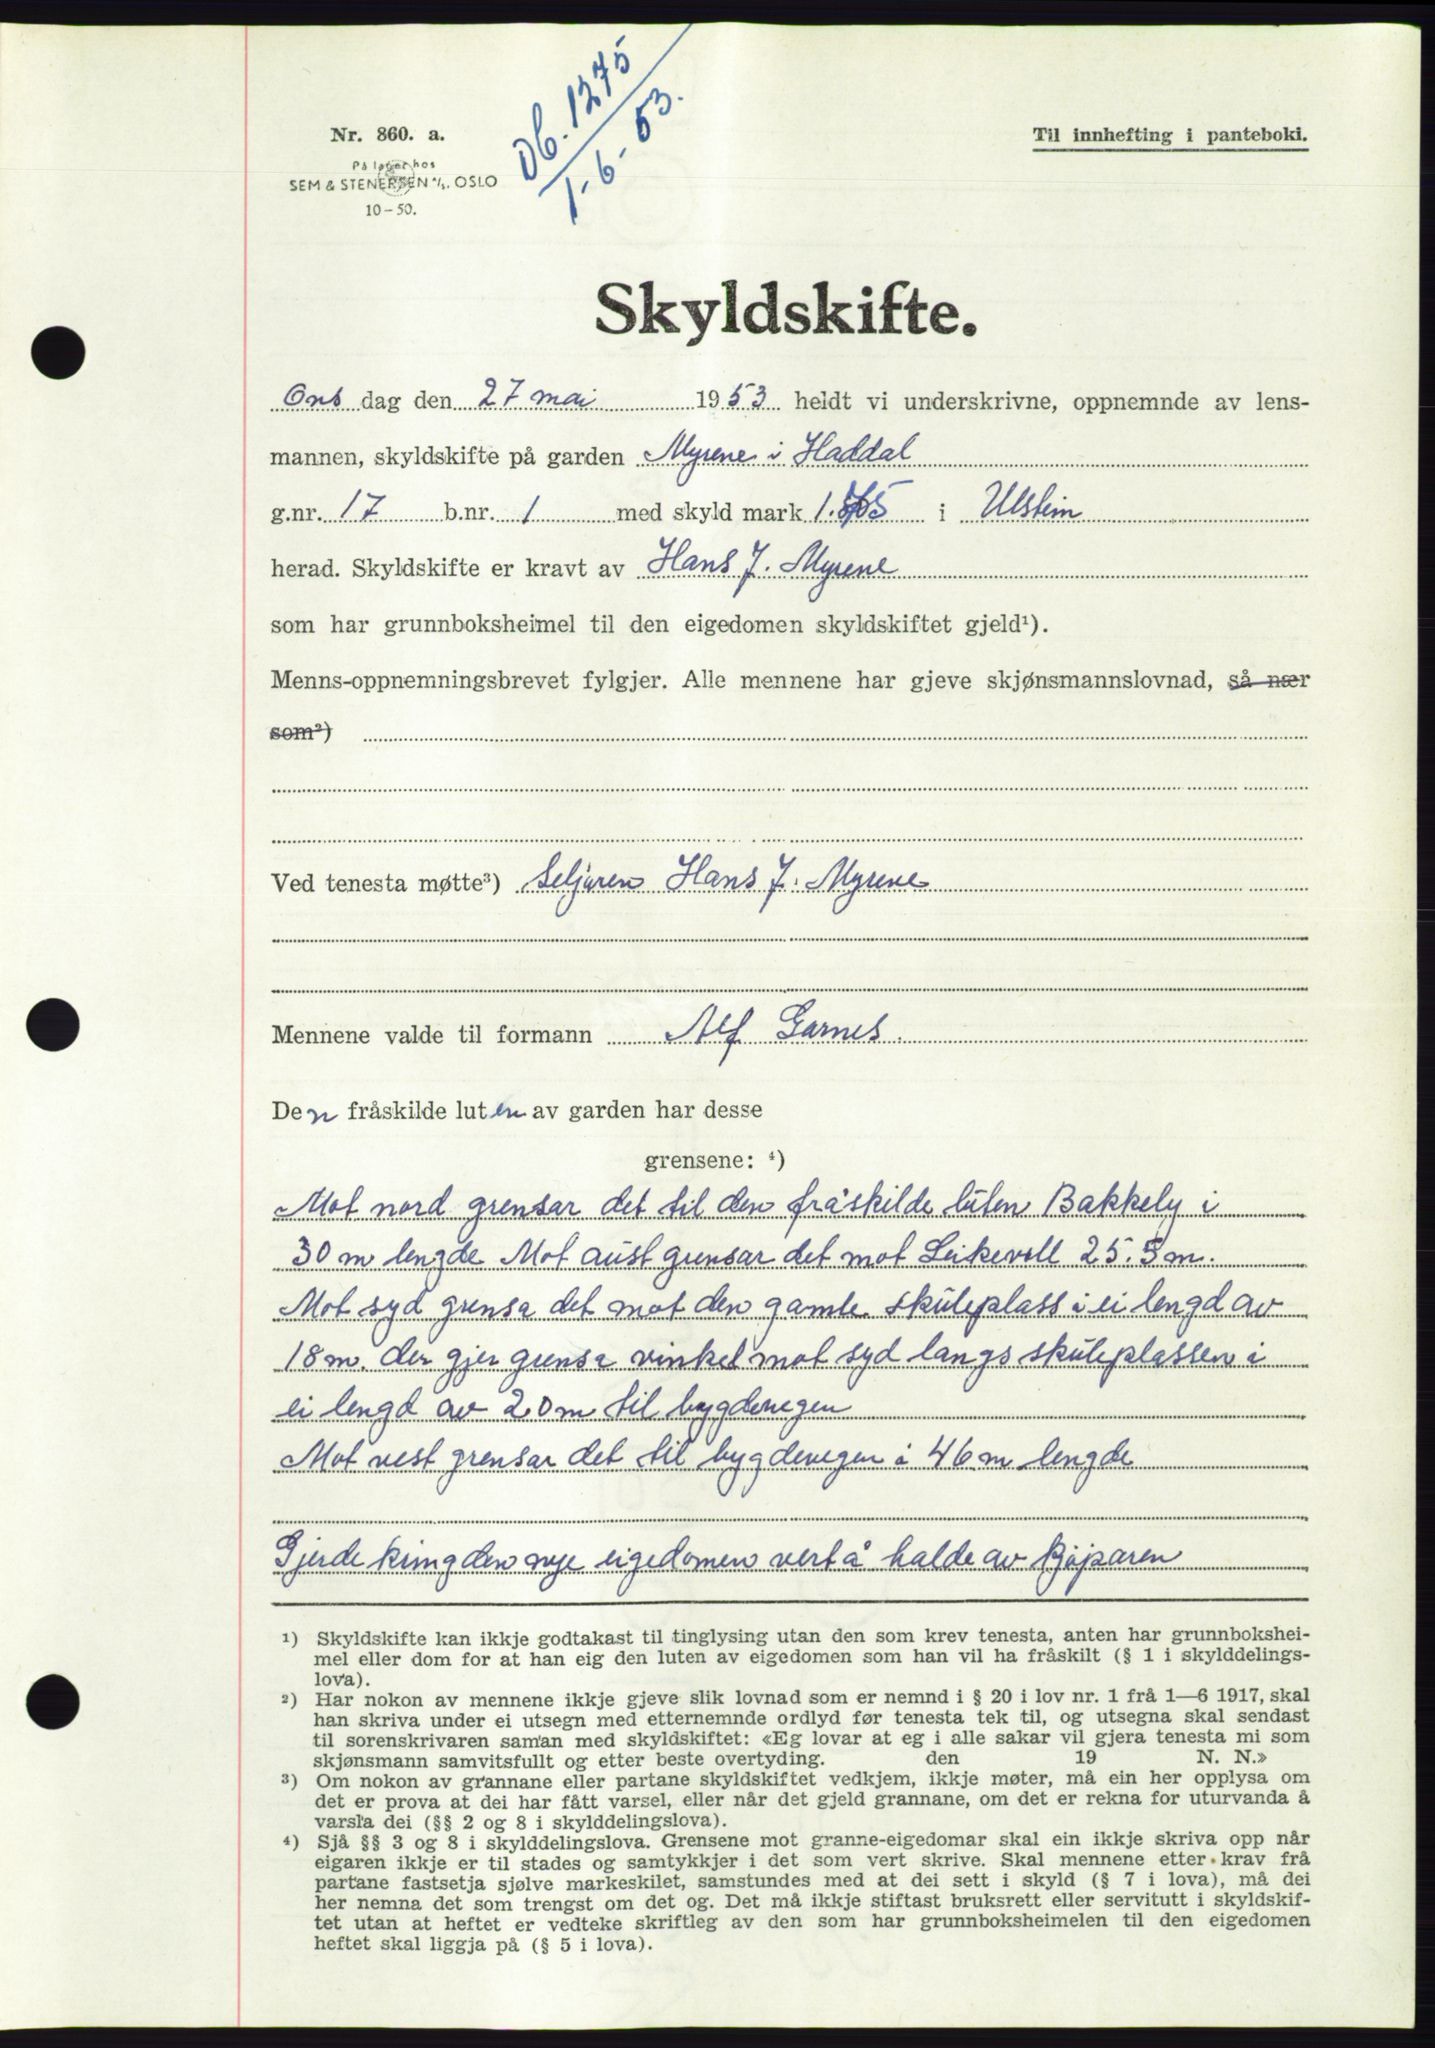 Db. 1275
1-6-53.
Nr. 860. a.
Til innhefting i panteboki.
På lager hos
SEM & STENERSEN A/S. OSLO
10-50.
Skyldskifte.
Ons dag den 27 mai 1953 heldt vi underskrivne, oppnemnde av lens-
mannen, skyldskifte på garden Myrene i Haddal
g.nr. 17 b.nr. 1 med skyld mark i Ulstein
herad. Skyldskifte er kravt av Hans J. Myrene
som har grunnboksheimel til den eigedomen skyldskiftet gjeld¹).
Menns-oppnemningsbrevet fylgjer. Alle mennene har gjeve skjønsmannslovnad, så nær
som²)
Ved tenesta møtte³) Seljaren Hans J. Myrene
Mennene valde til formann Alf Garnes.
Den fråskilde luten av garden har desse
grensene: ⁴)
Mot nord grensar det til den fråskilde luten Bakkely i
30 m lengde Mot aust grensar det mot Leikevoll 25.5 m.
Mot syd grensa det mot den gamle skuleplass i ei lengd av
18 m. der gjer grensa vinkel mot syd langs skuleplassen i
ei lengd av 20 m til bygdevegen
Mot vest grensar det til bygdevegen i 46 m lengde
Gjerde kring den nye eigedomen vert å halde av kjøparen
¹) Skyldskifte kan ikkje godtakast til tinglysing utan den som krev tenesta, anten har grunnbokshei-
mel eller dom for at han eig den luten av eigedomen som han vil ha fråskilt (§ 1 i skylddelings-
lova).
²) Har nokon av mennene ikkje gjeve slik lovnad som er nemnd i § 20 i lov nr. 1 frå 1—6 1917, skal
han skriva under ei utsegn med etternemnde ordlyd før tenesta tek til, og utsegna skal sendast
til sorenskrivaren saman med skyldskiftet: «Eg lovar at eg i alle sakar vil gjera tenesta mi som
skjønsmann samvitsfullt og etter beste overtyding. den 19 N. N.»
³) Om nokon av grannane eller partane skyldskiftet vedkjem, ikkje møter, må ein her opplysa om
det er prova at dei har fått varsel, eller når det gjeld grannane, om det er rekna for uturvanda å
varsla dei (§§ 2 og 8 i skylddelingslova).
⁴) Sjå §§ 3 og 8 i skylddelingslova. Grensene mot granne-eigedomar skal ein ikkje skriva opp når
eigaren ikkje er til stades og samtykkjer i det som vert skrive. Skal mennene etter krav frå
partane fastsetja sjølve markeskilet, samstundes med at dei sett i skyld (§ 7 i lova), må dei
her nemna det som trengst om det og. Det må ikkje stiftast bruksrett eller servitutt i skyldskif-
tet utan at heftet er vedteke skriftleg av den som har grunnboksheimelen til den eigedomen
heftet skal liggja på (§ 5 i lova).